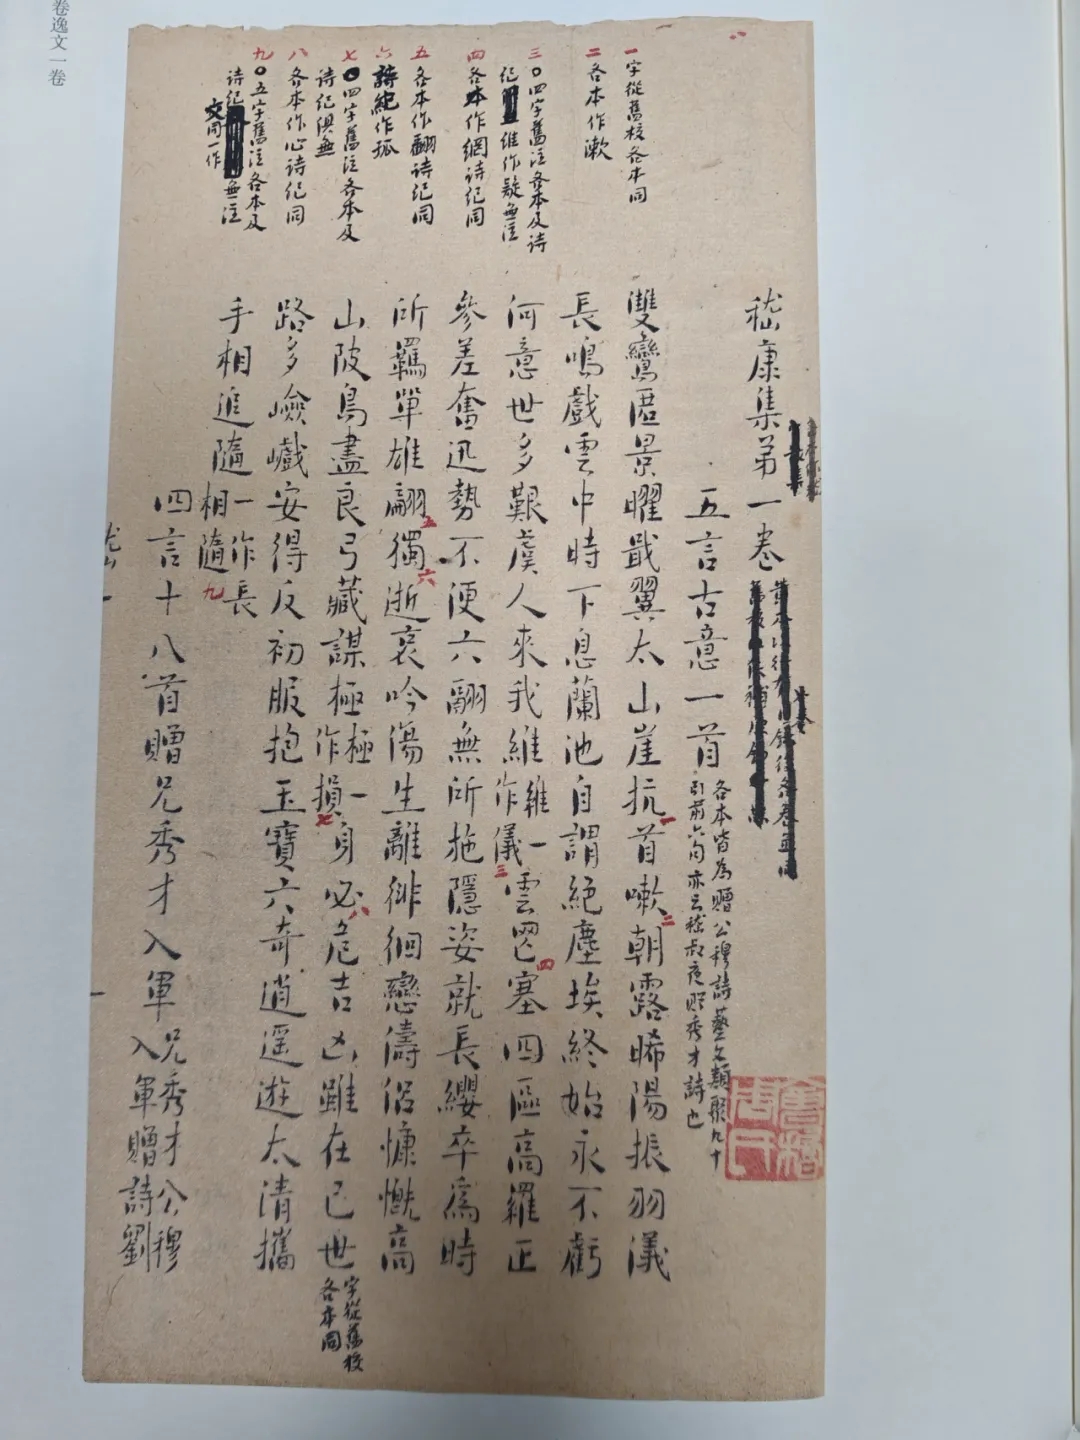 卷逸文一卷
一字從舊校各本同
二各本作漱
三〇四字舊注各本及詩
紀維作疑無注
四各本作網詩紀同
五各本作翩詩紀同
六詩紀作孤
七〇四字舊注各本及
詩紀俱無
八各本作心詩紀同
九〇五字舊注各本及
詩紀無注
文同一作
嵇康集第一卷
五言古意一首
各本皆為贈公穆詩藝文類聚九十
引前六句亦云嵇叔夜贈秀才詩也
雙鸞匿景曜戢翼太山崖抗首嗽朝露晞陽振羽儀
長鳴戲雲中時下息蘭池自謂絕塵埃終始永不虧
何意世多艱虞人來我維維一作儀雲罡塞四區高羅正
參差奮迅勢不便六翮無所施隱姿就長纓卒爲時
所羈單雄翩獨逝哀吟傷生離徘徊戀儔侶慷慨高
山陂鳥盡良弓藏謀極極一作損身必危吉凶雖在己世
字從舊校
各本同
路多嶮巇安得反初服抱玉寶六奇逍遥遊太清攜
手相追隨一作長相隨
四言十八首贈兄秀才入軍
兄秀才公穆
入軍贈詩劉
會稽周氏